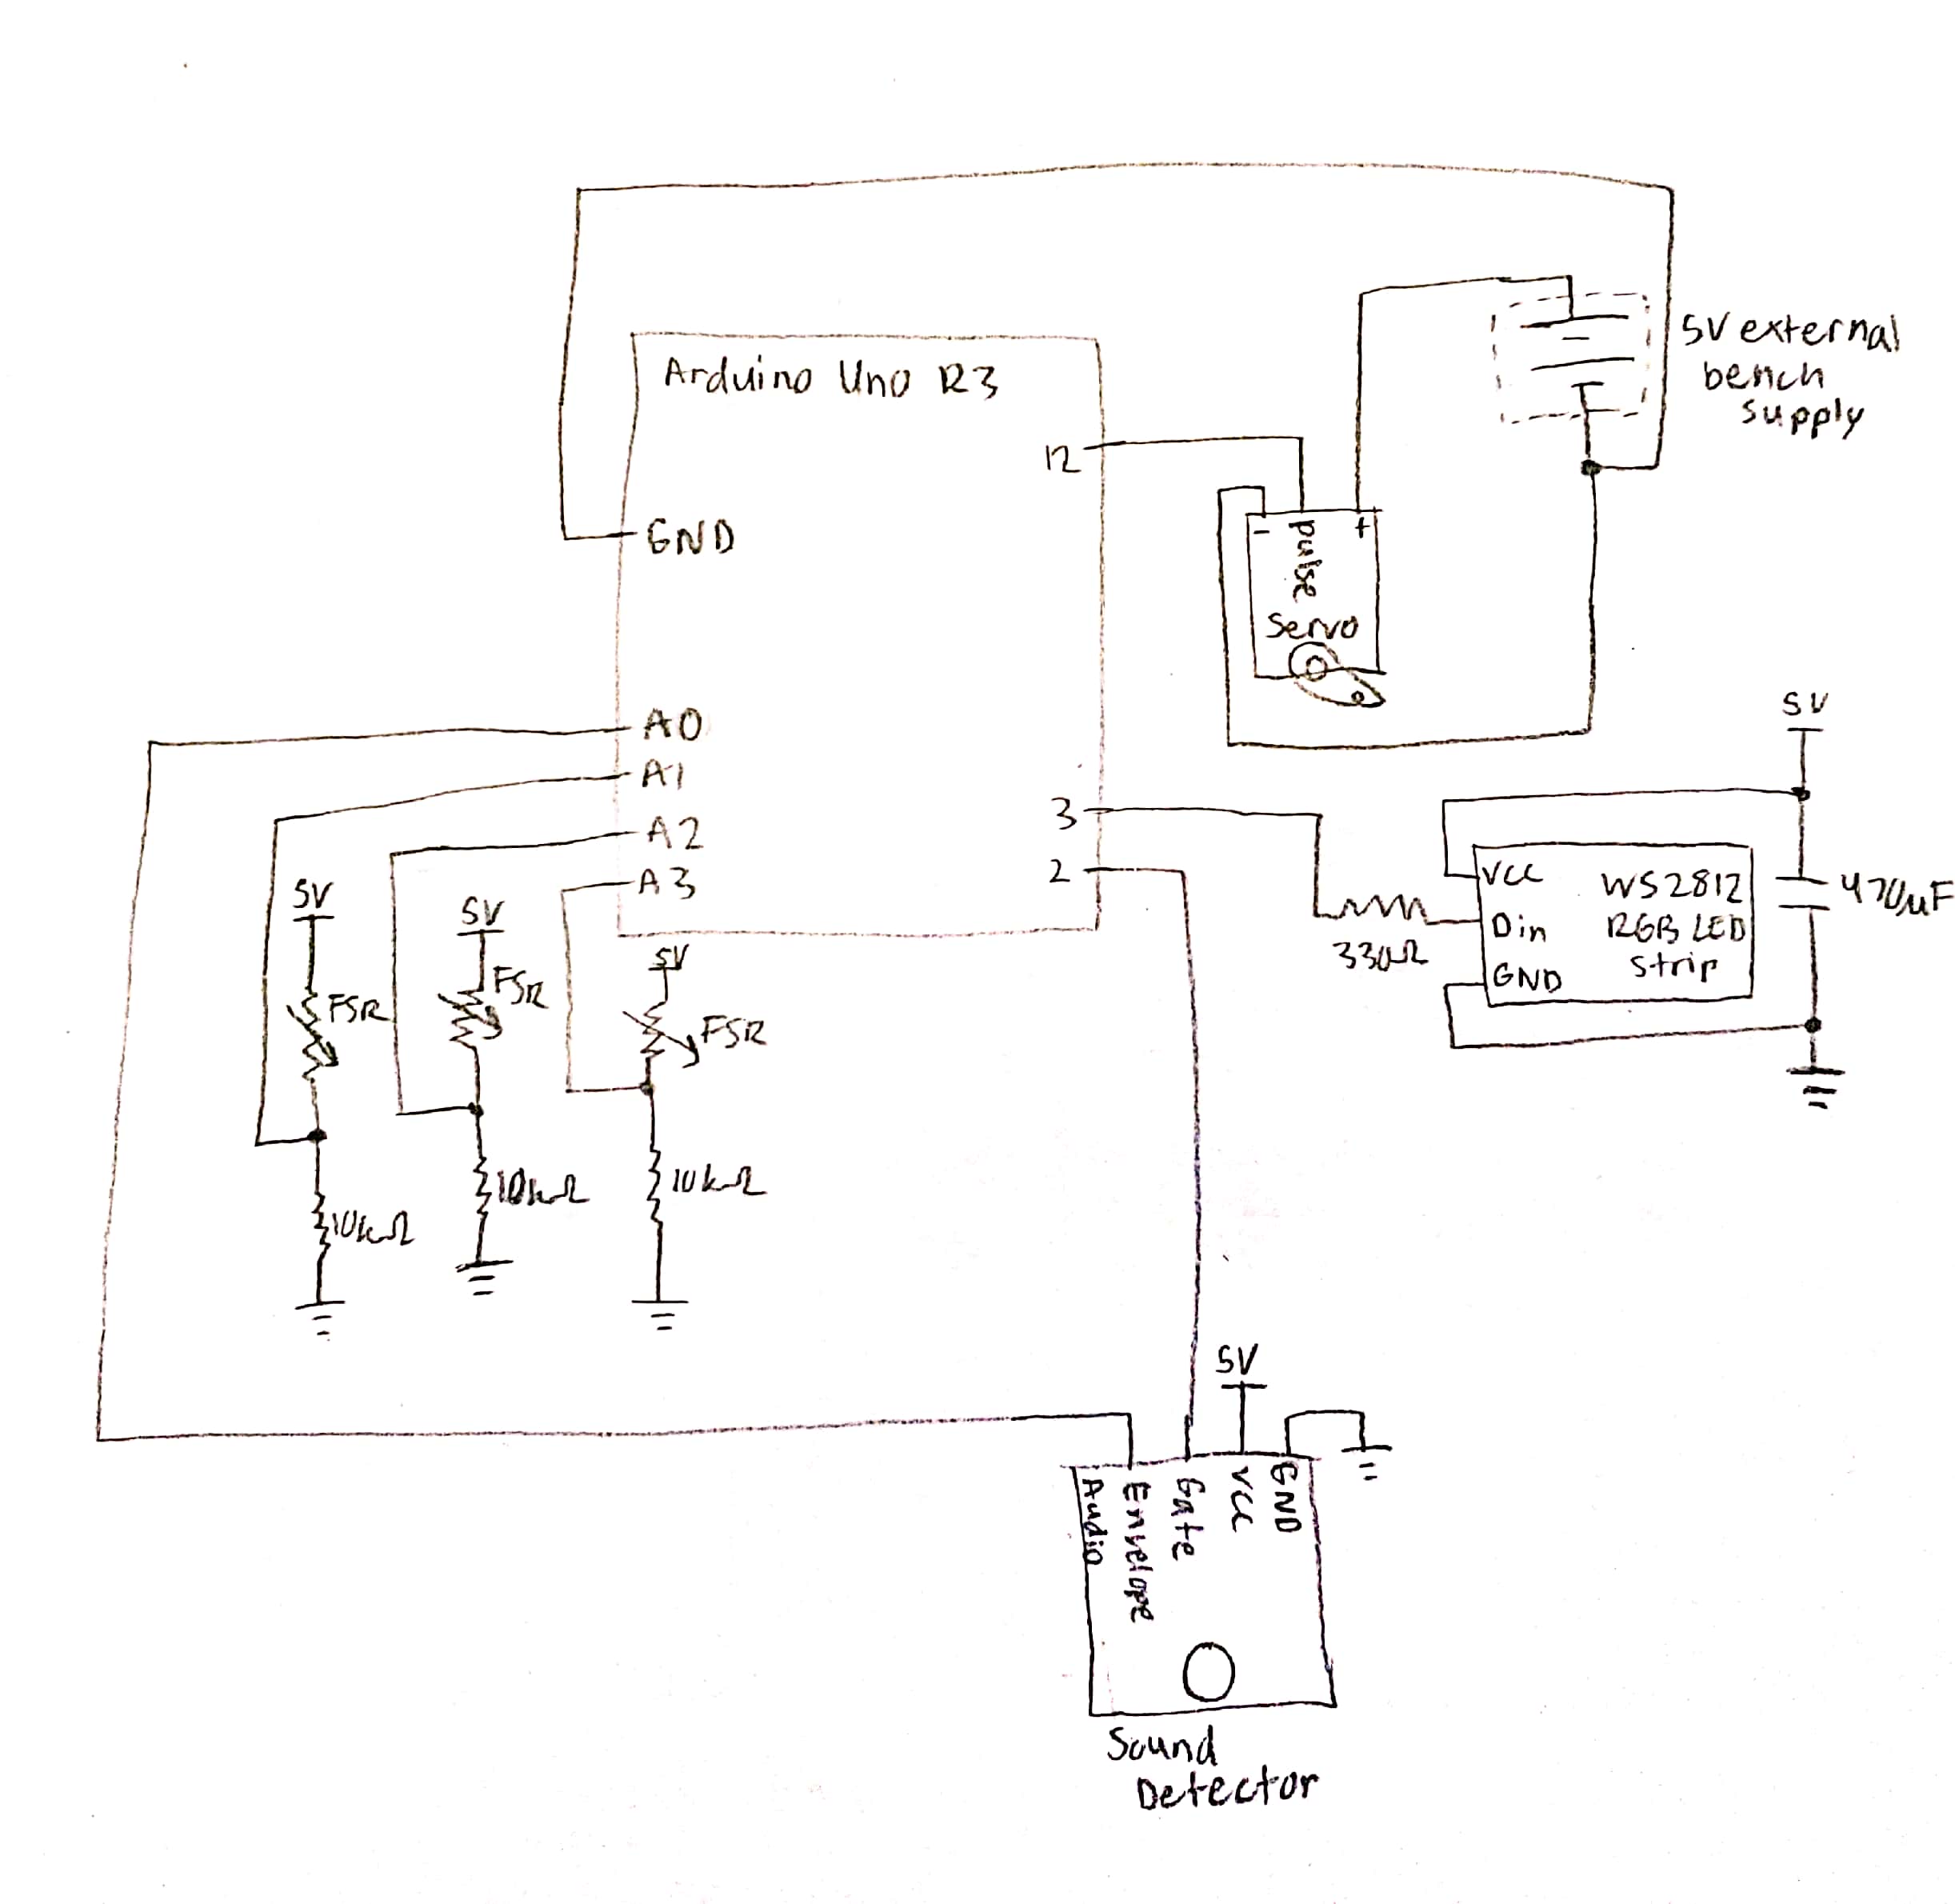 Arduino Uno R3
5V external
bench
supply
12
GND
- pulse +
Servo
A0
A1
A2
A3
3
2
5V
Vcc
WS2812
Din
RGB LED
GND
Strip
470µF
330Ω
5V
FSR
10kΩ
5V
FSR
10kΩ
5V
FSR
10kΩ
5V
Audio
Envelope
Gate
VCC
GND
Sound
Detector